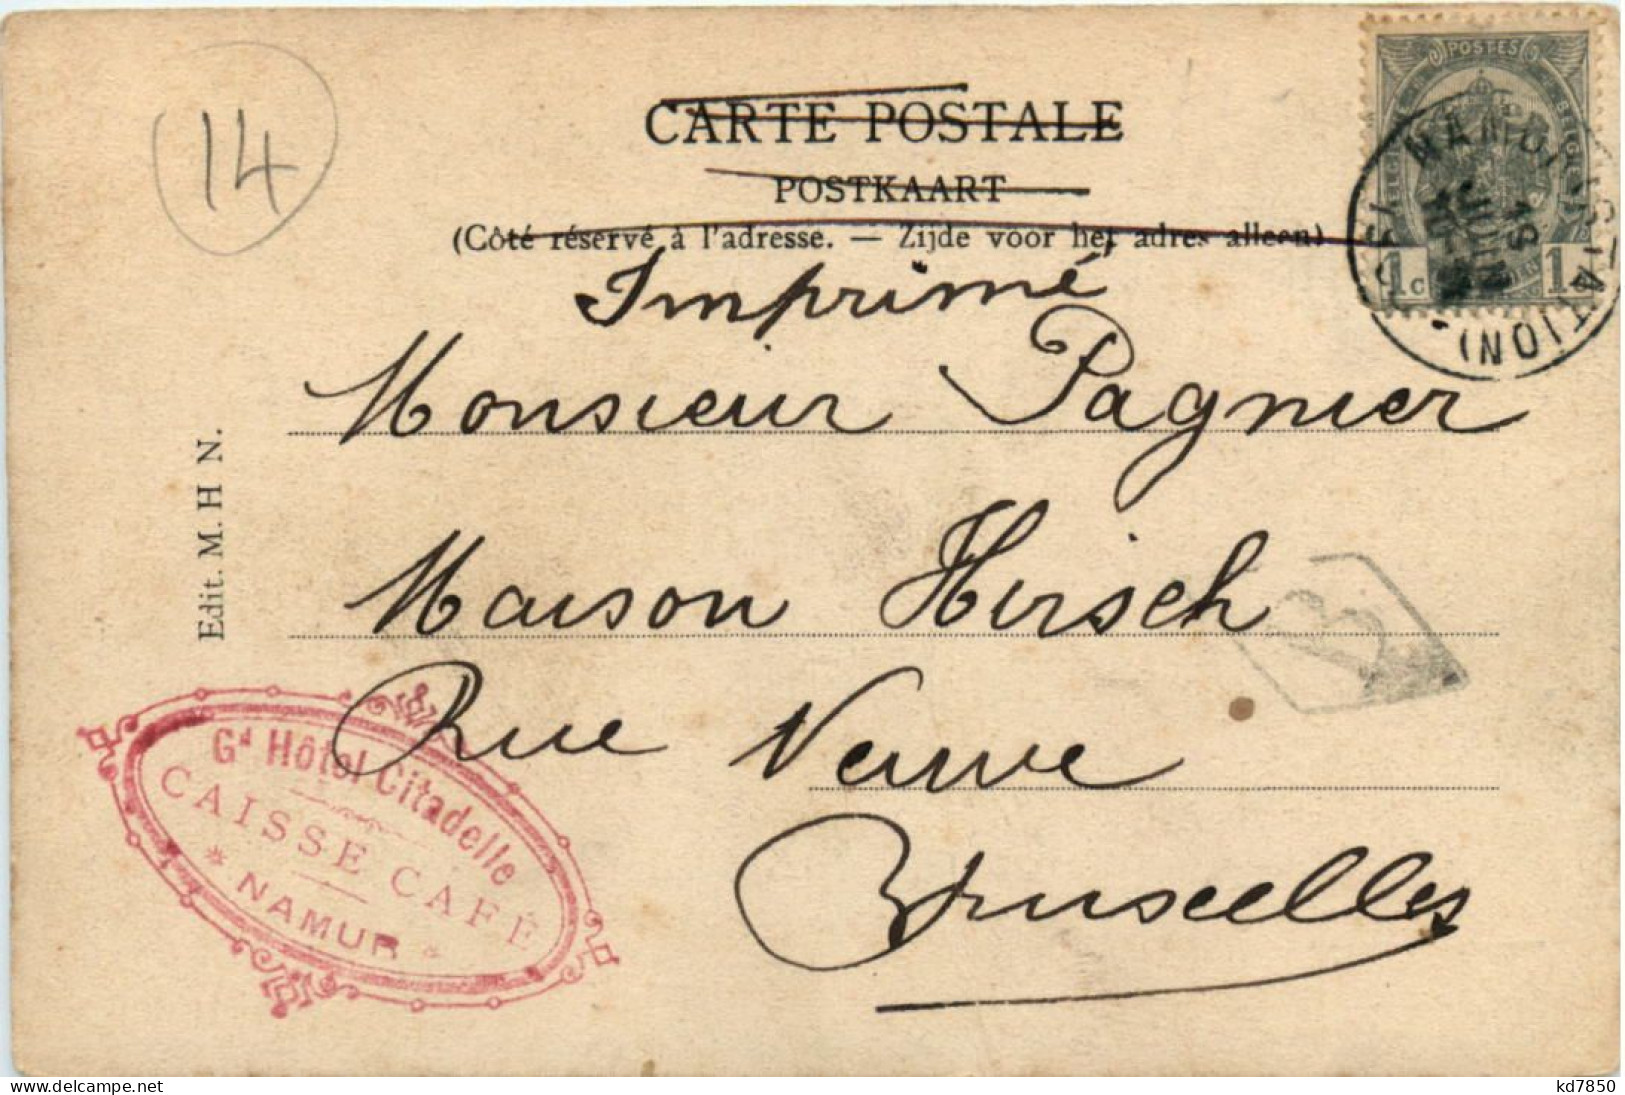 14
CARTE POSTALE
POSTKAART
(Côté réservé à l'adresse. — Zijde voor het adres alleen)
POSTES
BELGIQUE
1c
1
NAMUR (STATION)
JUIN
Imprimé
Monsieur Pagnier
Maison Hirsch
Rue Neuve
Bruxelles
Edit. M. H N.
B
Gd Hôtel Citadelle
CAISSE CAFÉ
* NAMUR *
kd7850